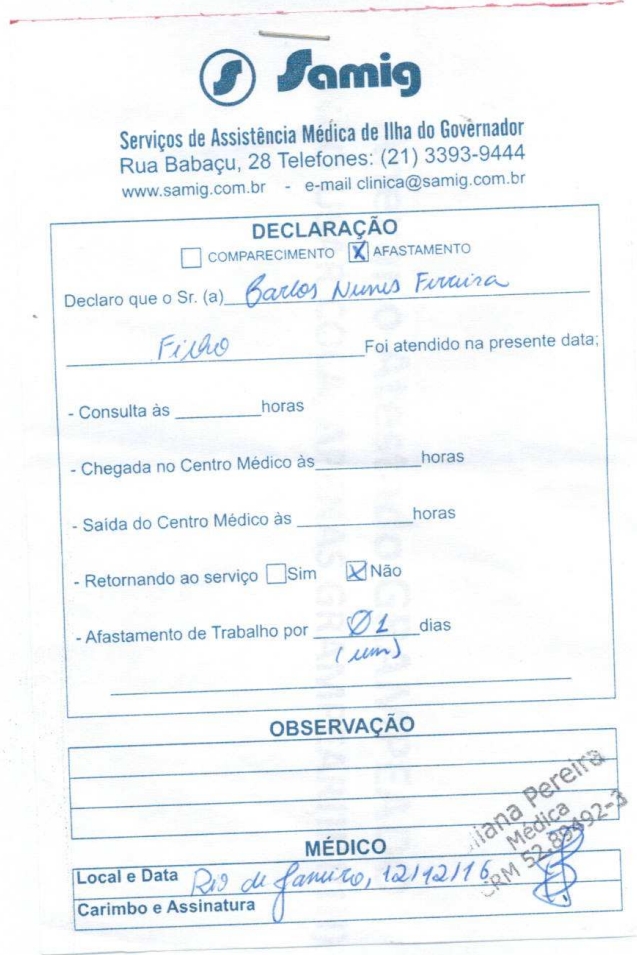 Samig
Serviços de Assistência Médica de Ilha do Governador
Rua Babaçu, 28 Telefones: (21) 3393-9444
www.samig.com.br - e-mail clinica@samig.com.br
DECLARAÇÃO
COMPARECIMENTO X AFASTAMENTO
Declaro que o Sr. (a) Carlos Nunes Ferreira
Filho Foi atendido na presente data;
- Consulta às ________horas
- Chegada no Centro Médico às__________horas
- Saída do Centro Médico às ___________horas
- Retornando ao serviço Sim X Não
- Afastamento de Trabalho por 01 dias
(um)
OBSERVAÇÃO
Pereira
Médica
CRM 52.89492-3
MÉDICO
Local e Data Rio de Janeiro, 12/12/16
Carimbo e Assinatura